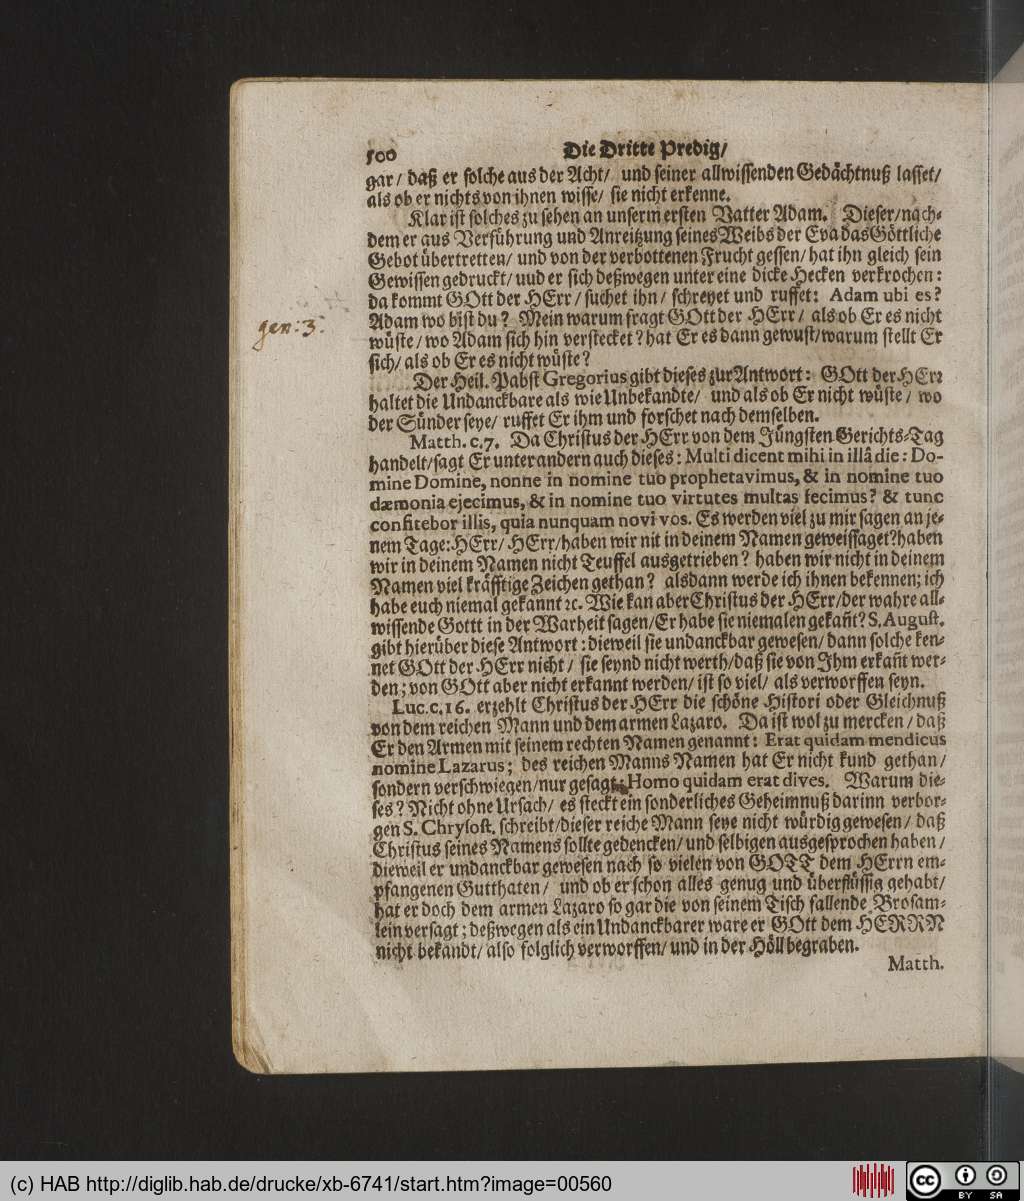 500 Die Dritte Predig/
gar/ daß er solche aus der Acht/ und seiner allwissenden Gedächtnuß lasset/
als ob er nichts von ihnen wisse/ sie nicht erkenne.
Klar ist solches zu sehen an unserm ersten Vatter Adam. Dieser/nach-
dem er aus Verführung und Anreitzung seines Weibs der Eva das Göttliche
Gebot übertretten/ und von der verbottenen Frucht gessen/ hat ihn gleich sein
Gewissen gedruckt/ uud er sich deßwegen unter eine dicke Hecken verkrochen:
da kommt GOtt der HErr/ suchet ihn/ schreyet und ruffet: Adam ubi es?
Adam wo bist du? Mein warum fragt GOtt der HErr/ als ob Er es nicht
gen: 3.
wüste/ wo Adam sich hin verstecket? hat Er es dann gewust/warum stellt Er
sich/ als ob Er es nicht wüste?
Der Heil. Pabst Gregorius gibt dieses zur Antwort: GOtt der HErr
haltet die Undanckbare als wie Unbekandte/ und als ob Er nicht wüste/ wo
der Sünder seye/ ruffet Er ihm und forschet nach demselben.
Matth. c. 7. Da Christus der HErr von dem Jüngsten Gerichts-Tag
handelt/sagt Er unter andern auch dieses: Multi dicent mihi in illâ die: Do-
mine Domine, nonne in nomine tuo prophetavimus, & in nomine tuo
dæmonia ejecimus, & in nomine tuo virtutes multas fecimus? & tunc
confitebor illis, quia nunquam novi vos. Es werden viel zu mir sagen an je-
nem Tage: HErr/ HErr/haben wir nit in deinem Namen geweissaget?haben
wir in deinem Namen nicht Teuffel ausgetrieben? haben wir nicht in deinem
Namen viel kräfftige Zeichen gethan? alsdann werde ich ihnen bekennen; ich
habe euch niemal gekannt ꝛc. Wie kan aber Christus der HErr/der wahre all-
wissende Gottt in der Warheit sagen/Er habe sie niemalen gekañt? S. August.
gibt hierüber diese Antwort: dieweil sie undanckbar gewesen/ dann solche ken-
net GOtt der HErr nicht/ sie seynd nicht werth/daß sie von Ihm erkañt wer-
den; von GOtt aber nicht erkannt werden/ ist so viel/ als verworffen seyn.
Luc. c. 16. erzehlt Christus der HErr die schöne Histori oder Gleichnuß
von dem reichen Mann und dem armen Lazaro. Da ist wol zu mercken/ daß
Er den Armen mit seinem rechten Namen genannt: Erat quidam mendicus
nomine Lazarus; des reichen Manns Namen hat Er nicht kund gethan/
sondern verschwiegen/nur gesagt: Homo quidam erat dives. Warum die-
ses? Nicht ohne Ursach/ es steckt ein sonderliches Geheimnuß darinn verbor-
gen S. Chrysost. schreibt/dieser reiche Mann seye nicht würdig gewesen/ daß
Christus seines Namens sollte gedencken/ und selbigen ausgesprochen haben/
dieweil er undanckbar gewesen nach so vielen von GOTT dem HErrn em-
pfangenen Gutthaten/ und ob er schon alles genug und überflüssig gehabt/
hat er doch dem armen Lazaro so gar die von seinem Tisch fallende Brosam-
lein versagt; deßwegen als ein Undanckbarer ware er GOtt dem HERRN
nicht bekandt/ also folglich verworffen/ und in der Höll begraben.
Matth.
(c) HAB http://diglib.hab.de/drucke/xb-6741/start.htm?image=00560
cc BY SA